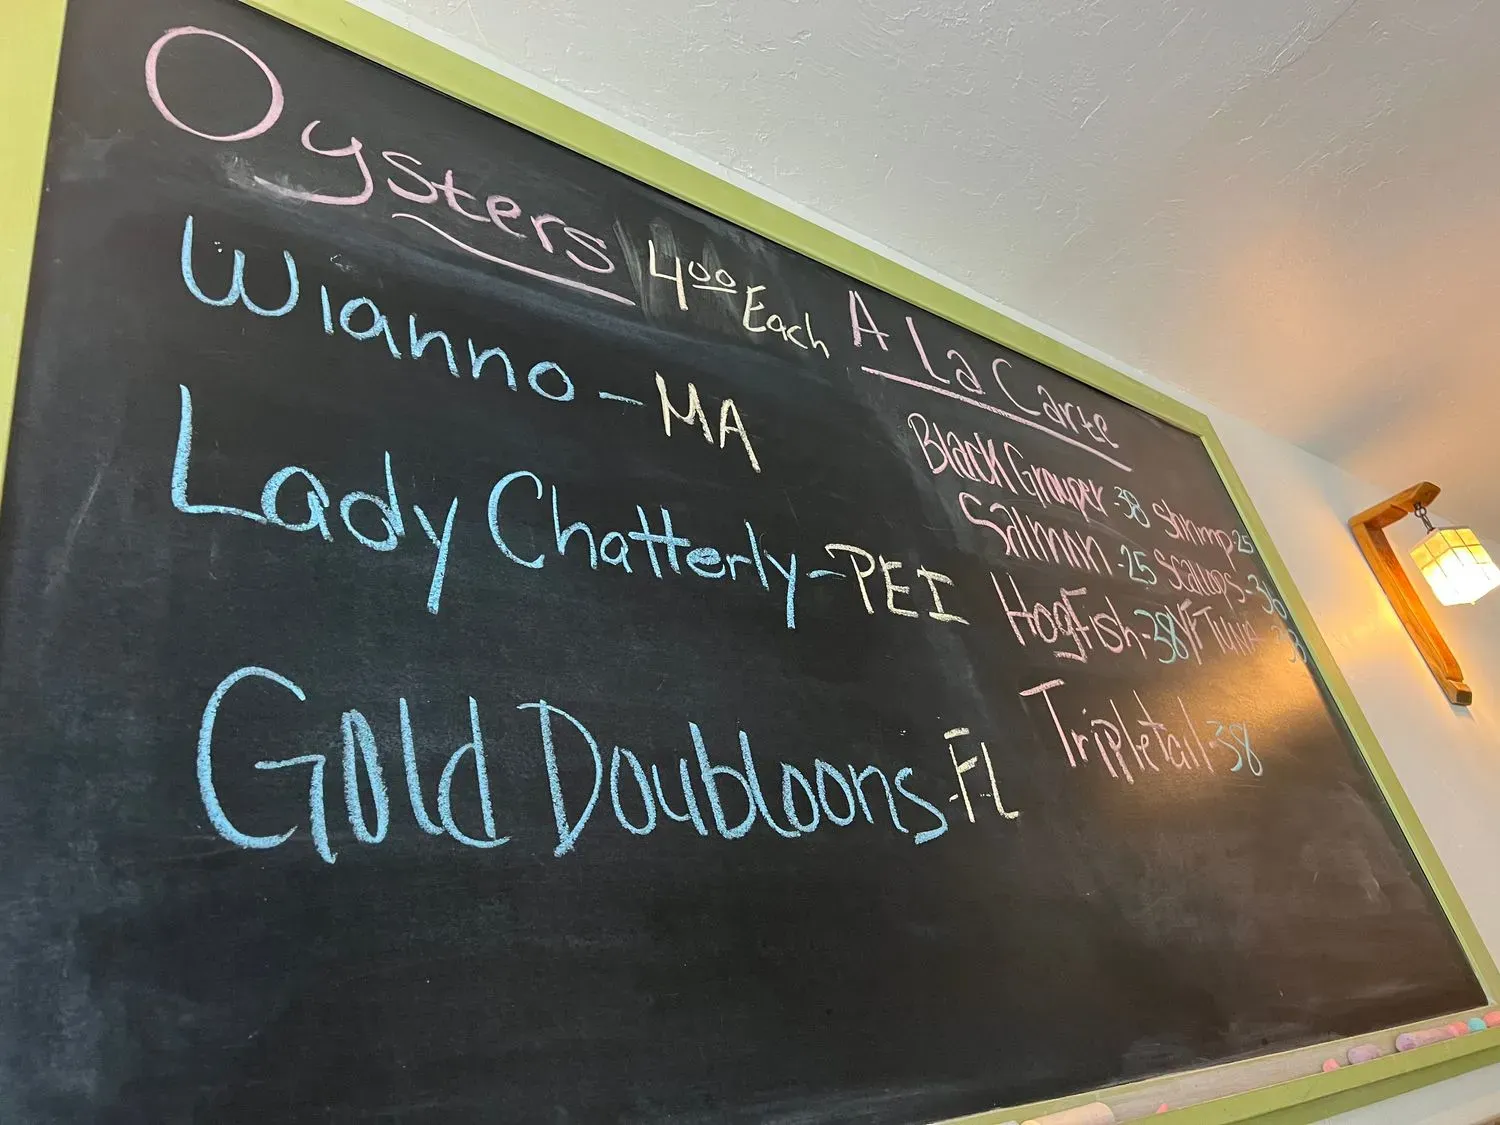 Oysters 4.00 Each
Wianno - MA
Lady Chatterly - PEI
Gold Doubloons - FL
A La Carte
Black Grouper - 38 Shrimp 25
Salmon - 25 Scallops -
Hogfish - 38 YF Tuna -
Tripletail - 38